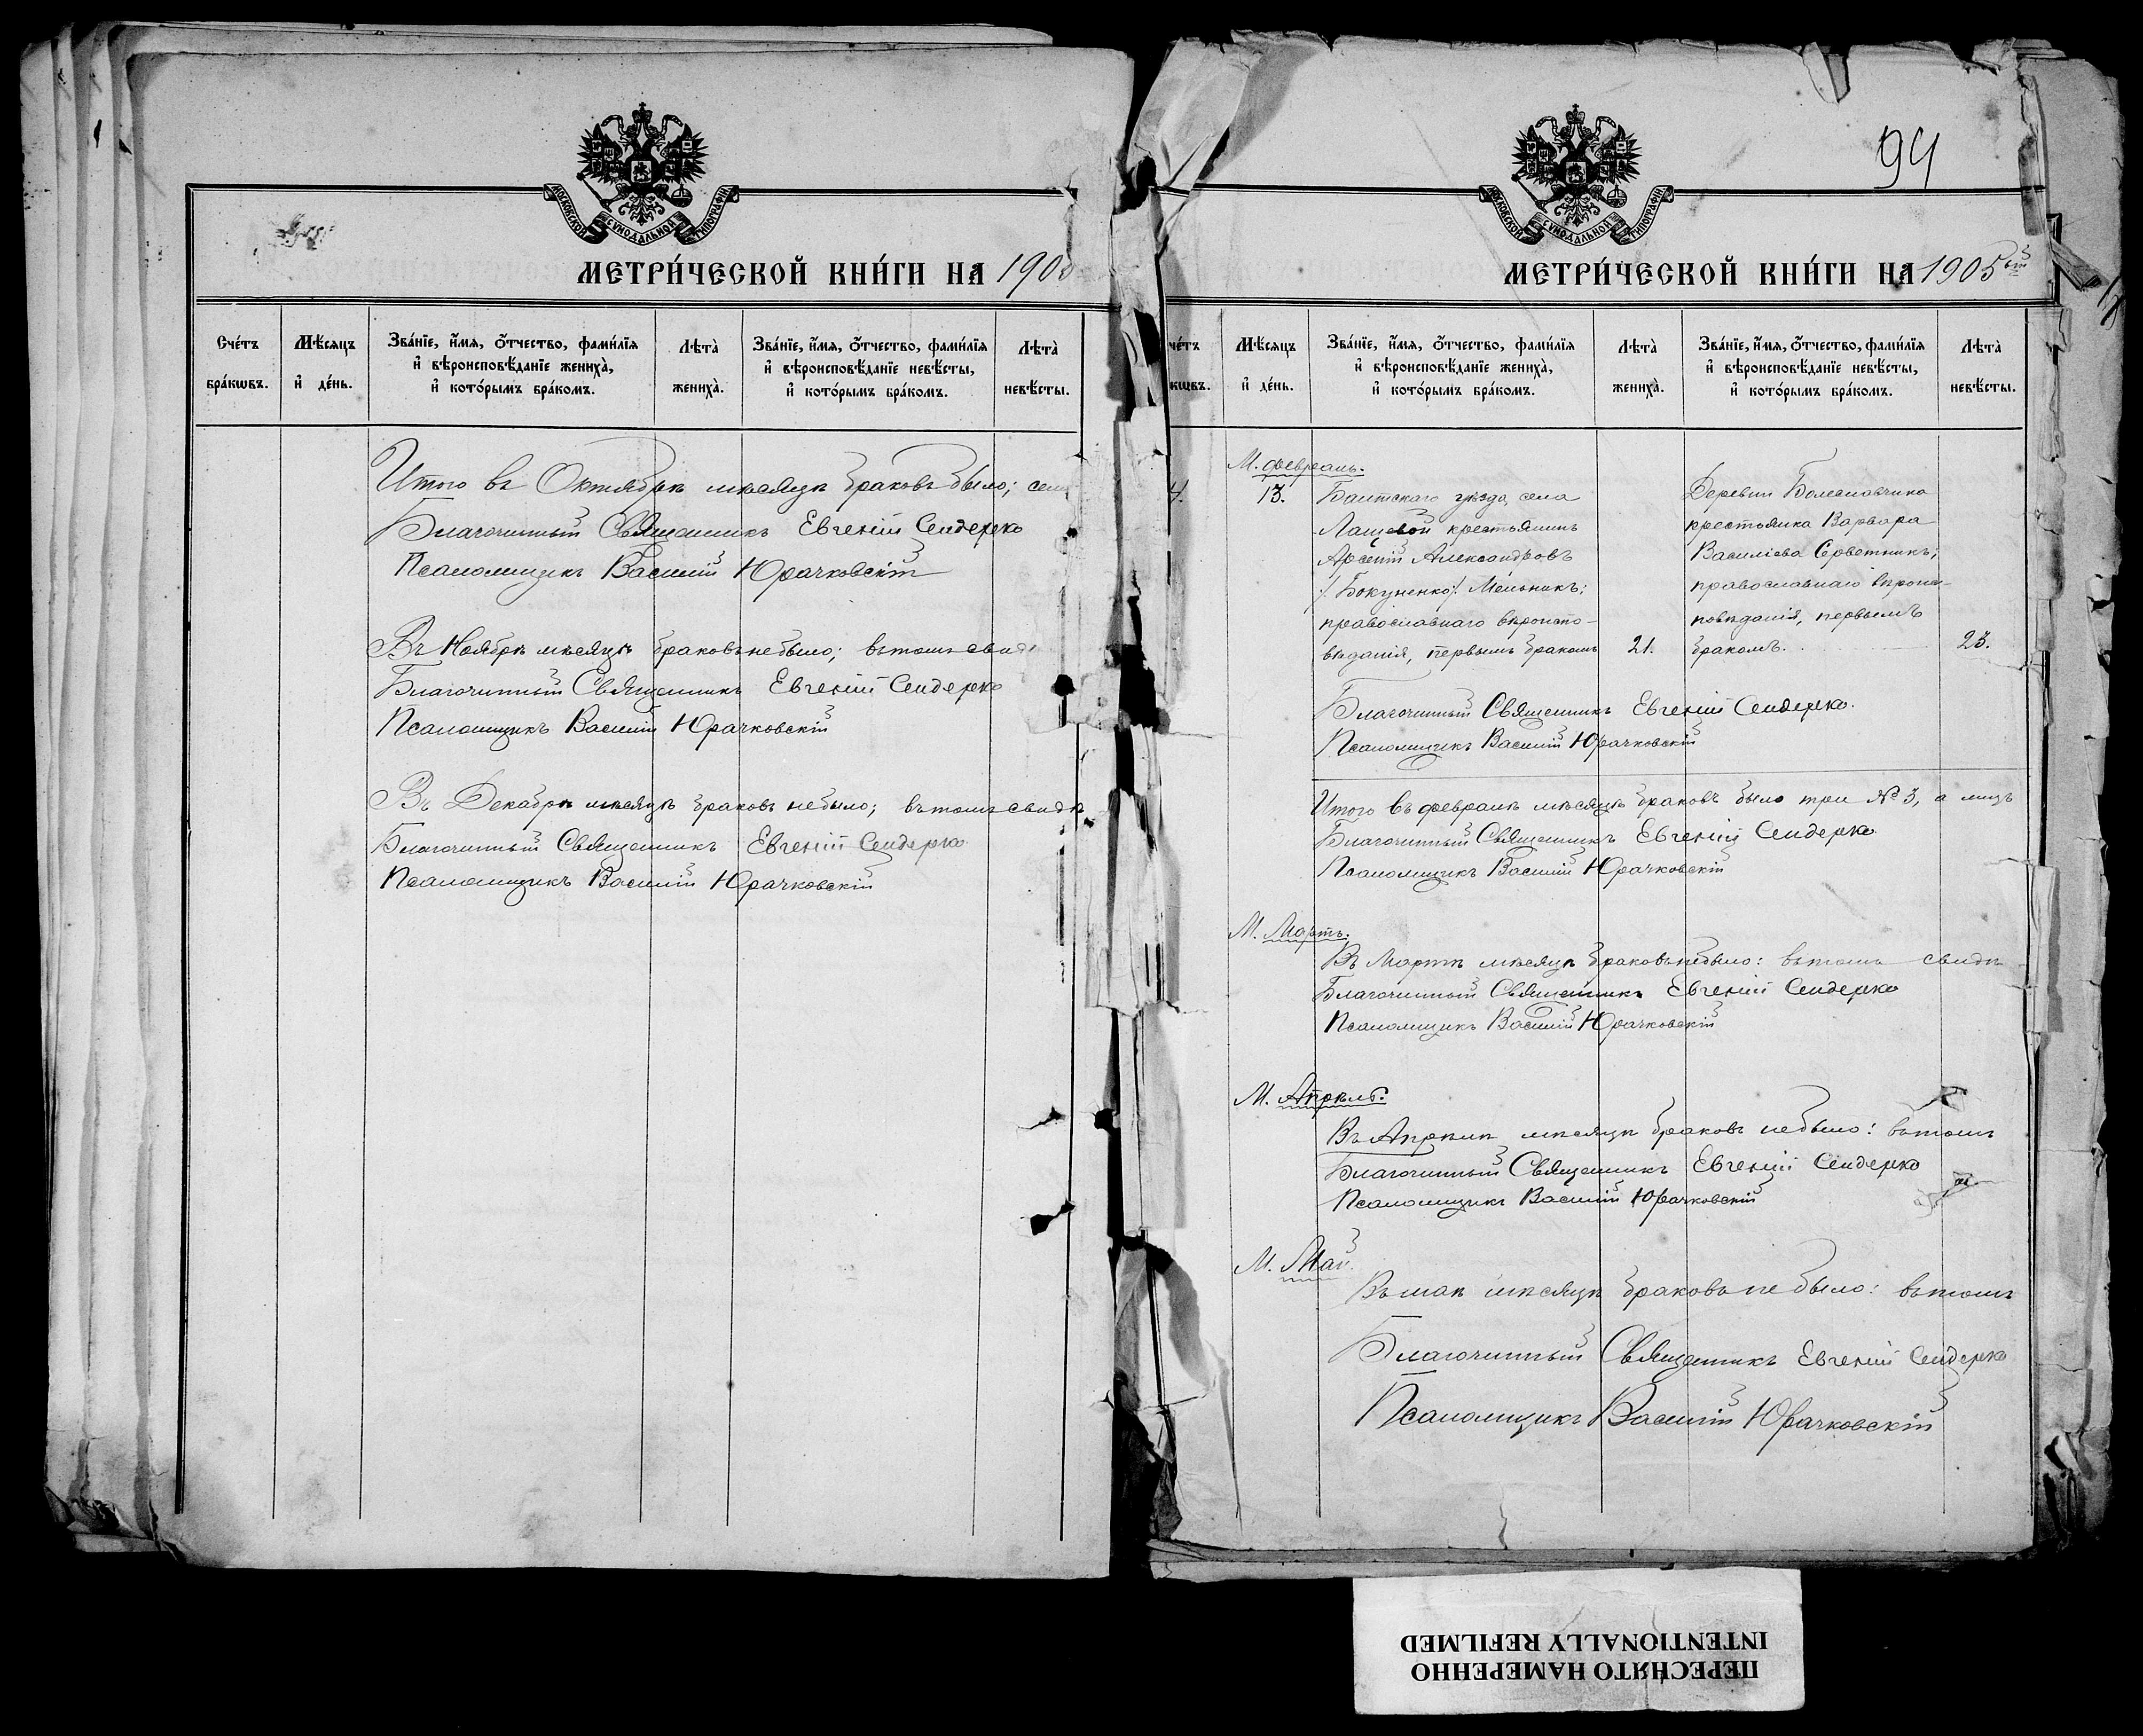 МОСКОВСКОЙ СѴНОДАЛЬНОЙ ТИПОГРАФІИ
МЕТРИ́ЧЕСКОЙ КНИ́ГИ НА 190
Сче́тъ бра́кѡвъ.
Мѣ́сяцъ и҆ де́нь.
Зва́нїе, и҆́мя, ѻ҆́тчество, фами́лїя и҆ вѣроисповѣ́данїе жениха̀, и҆ кото́рымъ бра́комъ.
Лѣта̀ жениха̀.
Зва́нїе, и҆́мя, ѻ҆́тчество, фами́лїя и҆ вѣроисповѣ́данїе невѣ́сты, и҆ кото́рымъ бра́комъ.
Лѣта̀ невѣ́сты.
Итого въ Октябрѣ мѣсяцѣ браковъ было;
Благочинный Священникъ Евгеній Сендерко
Псаломщикъ Василій Юрачковскій
Въ Ноябрѣ мѣсяцѣ браковъ не было; въ томъ свид
Благочинный Священникъ Евгеній Сендерко
Псаломщикъ Василій Юрачковскій
Въ Декабрѣ мѣсяцѣ браковъ не было; въ томъ свидѣ
Благочинный Священникъ Евгеній Сендерко
Псаломщикъ Василій Юрачковскій
94
МОСКОВСКОЙ СѴНОДАЛЬНОЙ ТИПОГРАФІИ
МЕТРИ́ЧЕСКОЙ КНИ́ГИ НА 1905ый
че́тъ кѡвъ.
Мѣ́сяцъ и҆ де́нь.
Зва́нїе, и҆́мя, ѻ҆́тчество, фами́лїя и҆ вѣроисповѣ́данїе жениха̀, и҆ кото́рымъ бра́комъ.
Лѣта̀ жениха̀.
Зва́нїе, и҆́мя, ѻ҆́тчество, фами́лїя и҆ вѣроисповѣ́данїе невѣ́сты, и҆ кото́рымъ бра́комъ.
Лѣта̀ невѣ́сты.
М. февраль.
4. 13.
Балтскаго уѣзда, села
Лащевой крестьянинъ
Арсеній Александровъ
/. Бокуненко/. Мельникъ;
православнаго вѣроиспо-
вѣданія, первымъ бракомъ 21.
Деревни Болеславчика
крестьянка Варвара
Василіева Серветникъ;
православнаго вѣроис-
повѣданія, первымъ
бракомъ. 23.
Благочинный Священникъ Евгеній Сендерко.
Псаломщикъ Василій Юрачковскій
Итого въ февралѣ мѣсяцѣ браковъ было три № 3, а лицъ
Благочинный Священникъ Евгеній Сендерко
Псаломщикъ Василій Юрачковскій
М. Мартъ.
Въ Мартѣ мѣсяцѣ браковъ не было: въ томъ свидѣ
Благочинный Священникъ Евгеній Сендерко
Псаломщикъ Василій Юрачковскій
М. Апрѣль.
Въ Апрѣлѣ мѣсяцѣ браковъ не было: въ томъ
Благочинный Священникъ Евгеній Сендерко
Псаломщикъ Василій Юрачковскій
М. Май.
Въ маѣ мѣсяцѣ браковъ не было: въ томъ
Благочинный Священникъ Евгеній Сендерко
Псаломщикъ Василій Юрачковскій
ПЕРЕСНЯТО НАМЕРЕННО
INTENTIONALLY REFILMED